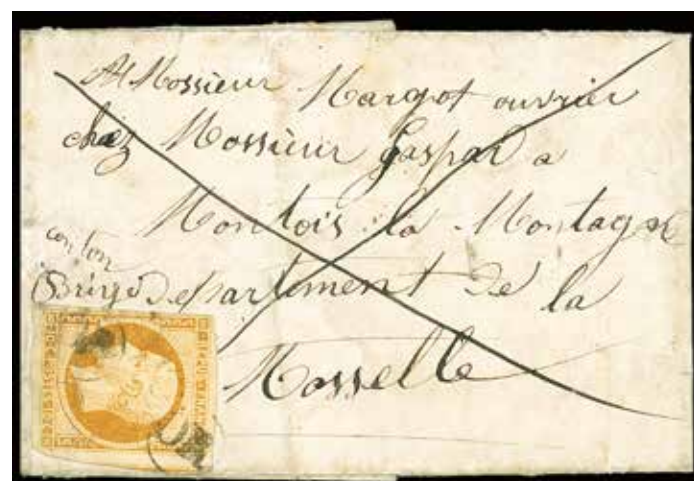 A Mossieur Margot ouvrier
chez Mossieur Gaspar a
Montois la Montagne
conton
Briey departement de la
Mosselle
OR